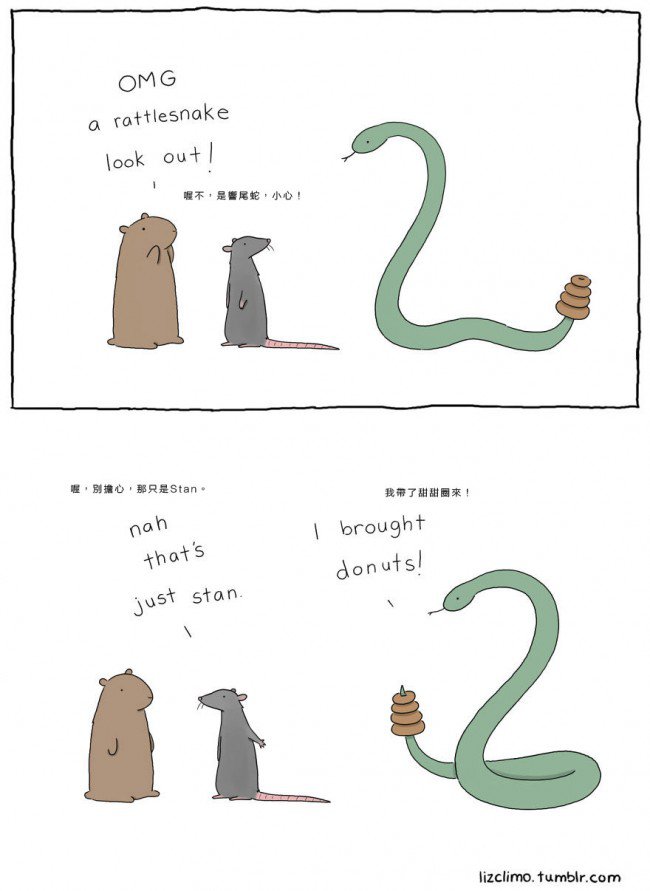 OMG
a rattlesnake
look out!
喔不，是響尾蛇，小心！
喔，別擔心，那只是Stan。
nah
that's
just stan.
我帶了甜甜圈來！
I brought
donuts!
lizclimo.tumblr.com